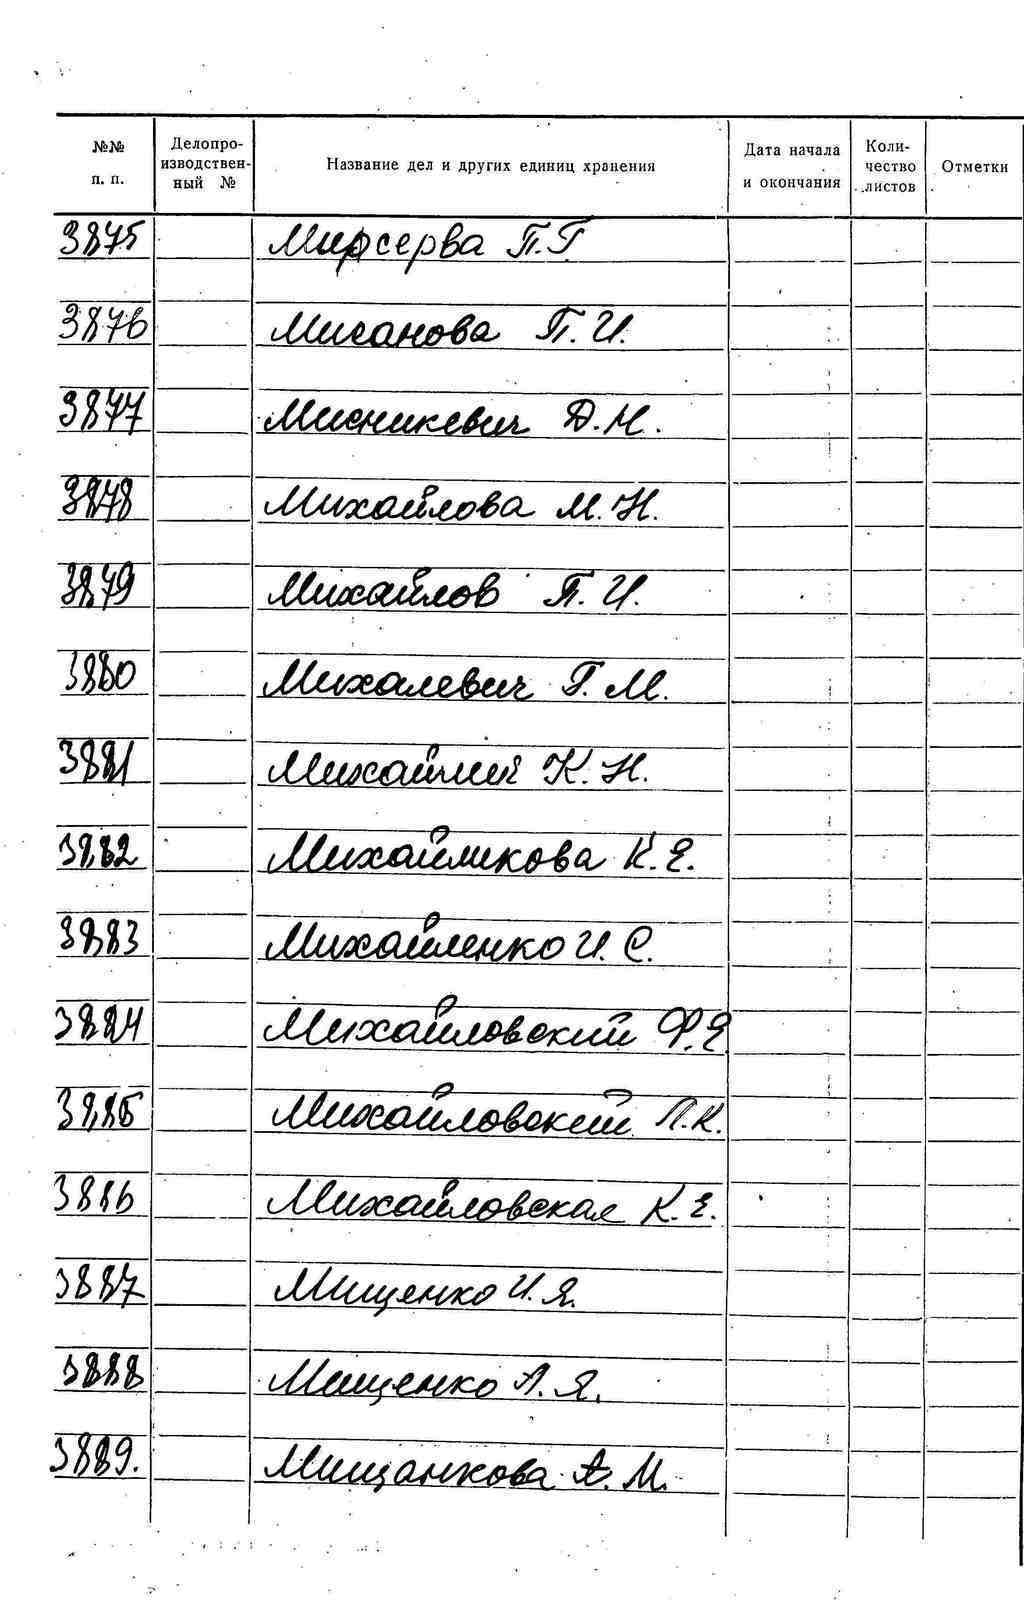 №№ п. п. Делопроизводственный № Название дел и других единиц хранения Дата начала и окончания Количество листов Отметки
3875 Мирсерва П.Г.
3876 Мисанова П. И.
3877 Мисникевич Д.Н.
3878 Михайлова М.Н.
3879 Михайлов П. И.
3880 Михалевич Г.М.
3881 К.Н.
3882 К.Е.
3883 Михайленко И.С.
3884 Михайловский Ф.Е
3885 Михайловский П.К.
3886 Михайловская К.Е.
3887 Мищенко И.Я.
3888 Мищенко А.Я.
3889. Мищанкова А.М.